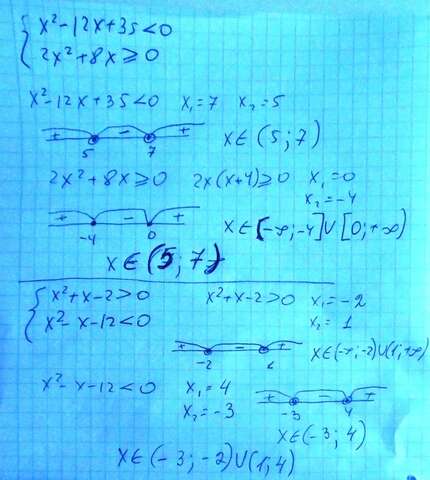 { x²-12x+35<0
2x²+8x≥0
x²-12x+35<0 x₁=7 x₂=5
+ - +
5 7
x∈(5;7)
2x²+8x≥0 2x(x+4)≥0 x₁=0
x₂=-4
+ - +
-4 0
x∈[-∞;-4]∪[0;+∞)
x∈(5;7)
{ x²+x-2>0 x²+x-2>0 x₁=-2
x²-x-12<0 x₂=1
+ - +
-2
x∈(-∞;-2)∪(1;+∞)
x²-x-12<0 x₁=4
x₂=-3
+ - +
-3 4
x∈(-3;4)
x∈(-3;-2)∪(1;4)